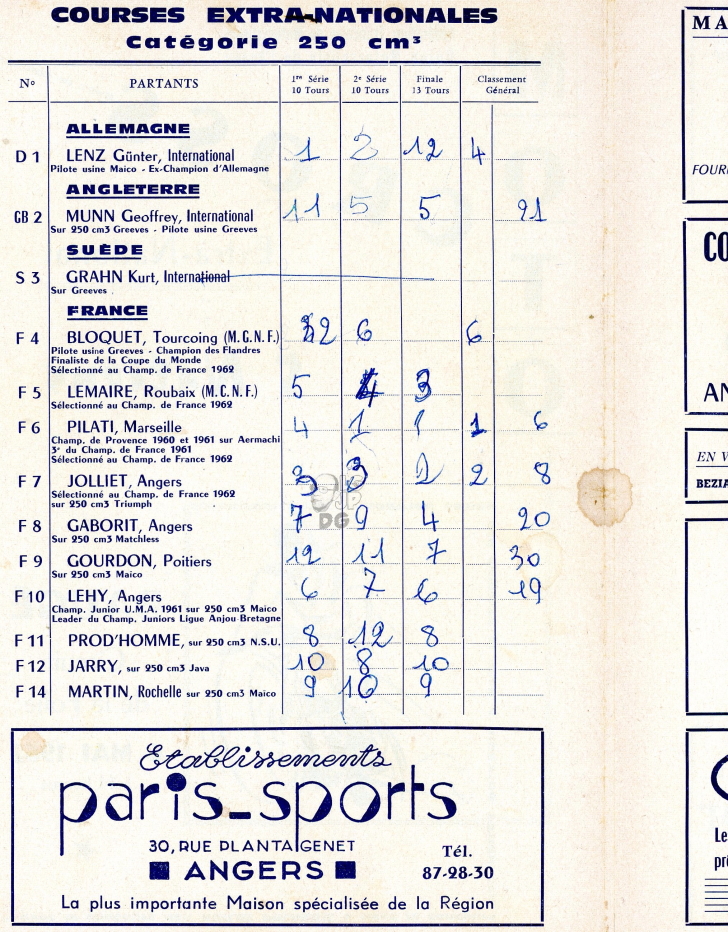 COURSES EXTRA-NATIONALES
Catégorie 250 cm³
Nº PARTANTS 1re Série 10 Tours 2e Série 10 Tours Finale 13 Tours Classement Général
ALLEMAGNE
D 1 LENZ Günter, International 1 2 12 4
Pilote usine Maico - Ex-Champion d'Allemagne
ANGLETERRE
GB 2 MUNN Geoffrey, International 11 5 5 21
Sur 250 cm3 Greeves - Pilote usine Greeves
SUÈDE
S 3 GRAHN Kurt, International
Sur Greeves
FRANCE
F 4 BLOQUET, Tourcoing (M.C.N.F.) 2 6 6
Pilote usine Greeves - Champion des Flandres
Finaliste de la Coupe du Monde
Sélectionné au Champ. de France 1962
F 5 LEMAIRE, Roubaix (M.C.N.F.) 5 4 3
Sélectionné au Champ. de France 1962
F 6 PILATI, Marseille 4 1 1 1 6
Champ. de Provence 1960 et 1961 sur Aermachi
3e du Champ. de France 1961
Sélectionné au Champ. de France 1962
F 7 JOLLIET, Angers 3 3 2 2 8
Sélectionné au Champ. de France 1962
sur 250 cm3 Triumph
F 8 GABORIT, Angers 7 9 4 20
Sur 250 cm3 Matchless
DG
F 9 GOURDON, Poitiers 12 11 7 30
Sur 250 cm3 Maico
F 10 LEHY, Angers 6 7 6 19
Champ. Junior U.M.A. 1961 sur 250 cm3 Maico
Leader du Champ. Juniors Ligue Anjou-Bretagne
F 11 PROD'HOMME, sur 250 cm3 N.S.U. 8 12 8
F 12 JARRY, sur 250 cm3 Java 10 8 10
F 14 MARTIN, Rochelle sur 250 cm3 Maico 9 10 9
Etablissements
paris-sports
30, RUE PLANTAGENET
ANGERS
Tél.
87-28-30
La plus importante Maison spécialisée de la Région
MA
FOUR
CO
AN
EN V
BEZIA
Le
pré